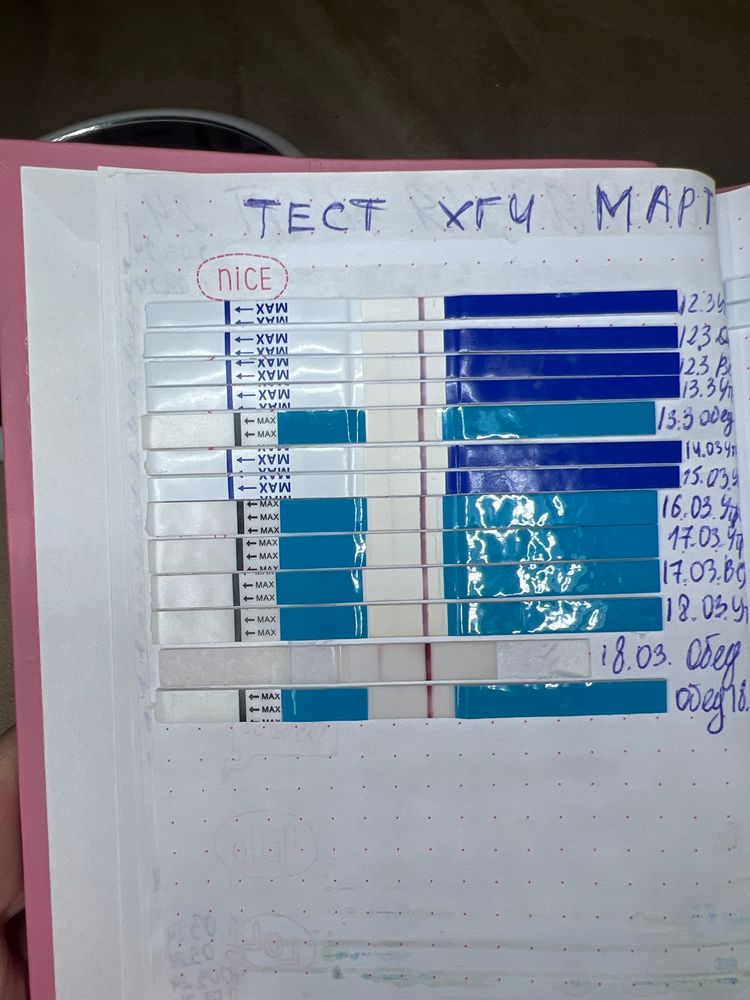 ТЕСТ ХГЧ МАРТ
nice
←MAX 12.3 Ут
←MAX
←MAX 12.3
←MAX 12.3 Ве
←MAX 13.3 Ут
←MAX
←MAX 13.3 Обед
←MAX
←MAX 14.03 Ут
←MAX 15.03 У
←MAX 16.03. Ут
←MAX
←MAX 17.03. Ут
←MAX
←MAX 17.03. Ве
←MAX
←MAX 18.03. Ут
←MAX
18.03. Обед
←MAX Обед 18.
←MAX